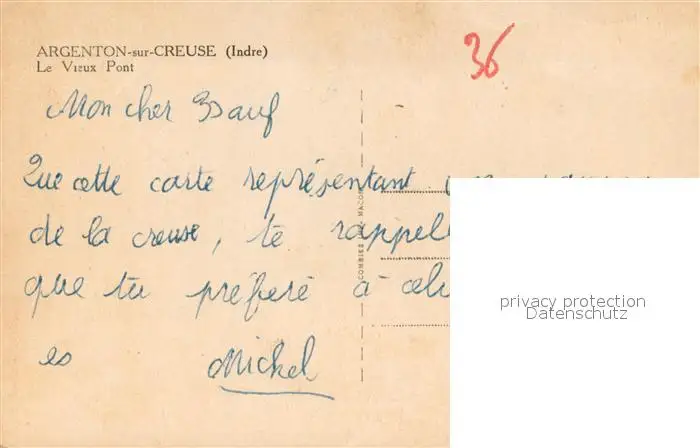 ARGENTON-sur-CREUSE (Indre)
Le Vieux Pont
36
Mon cher
Que cette carte représentant
de la creuse, te rappell
que tu préferé à celu
es Michel
COMBIER MACON
privacy protection
Datenschutz